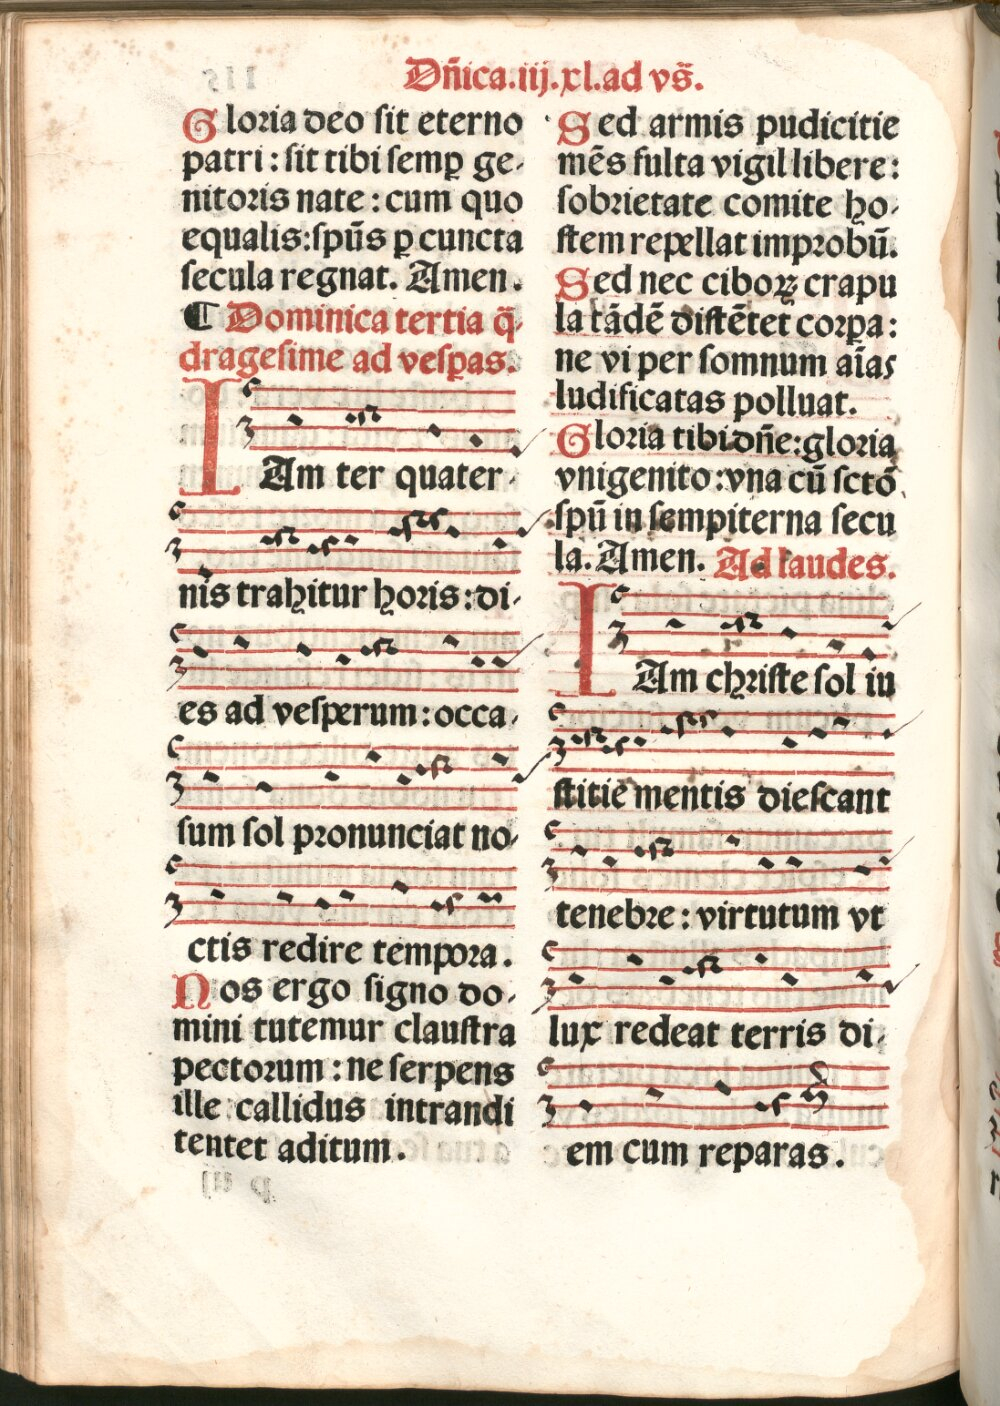 Dñica.iij.xl.ad vs̃.
Gloria deo sit eterno
patri : sit tibi semꝑ ge-
nitoris nate : cum quo
equalis:spũs ꝑ cuncta
secula regnat. Amen.
¶ Dominica tertia q̃-
dragesime ad vesꝑas.
IAm ter quater-
nis trahitur horis:di-
es ad vesperum : occa-
sum sol pronunciat no-
ctis redire tempora.
Nos ergo signo do-
mini tutemur claustra
pectorum : ne serpens
ille callidus intrandi
tentet aditum.
Sed armis pudicitie
mẽs fulta vigil libere:
sobrietate comite ho-
stem repellat improbũ.
Sed nec ciboꝝ crapu
la tãdẽ distẽtet corꝑa:
ne vi per somnum aĩas
ludificatas polluat.
Gloria tibi dñe:gloria
vnigenito:vna cũ sctõ
spũ in sempiterna secu
la. Amen. Ad laudes.
IAm christe sol iu
stitie mentis diescant
tenebre : virtutum vt
lux redeat terris di-
em cum reparas.